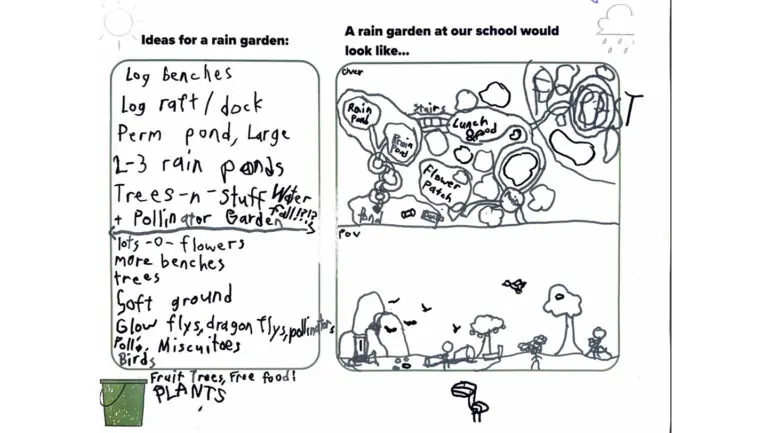 Ideas for a rain garden:
Log benches
Log raft/dock
Perm pond, Large
2-3 rain ponds
Trees-n-Stuff Water
+ Pollinator Garden fall!?!?
lots-o-flowers
more benches
trees
Soft ground
Glow flys, dragon flys, pollinators
Miscuitoes
Birds
Fruit Trees, Free food!
PLANTS
A rain garden at our school would
look like...
Over
Rain
Pond
Stairs
Lunch
Pod
Rain
Pond
Flower
Patch
T
POV